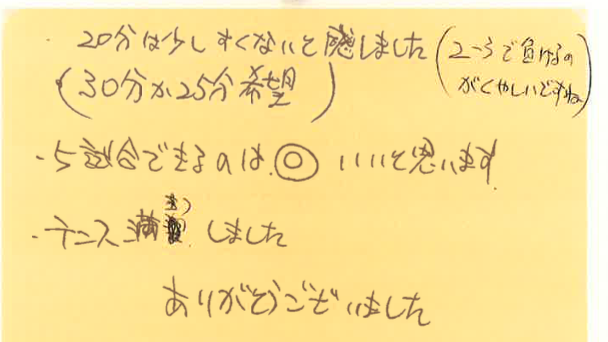 ・20分は少しすくないと感じました
(2-3で負けるの
がくやしいですね)
(30分か25分希望)
・5試合できるのは◎いいと思います
・テニス満きつしました
ありがとうございました